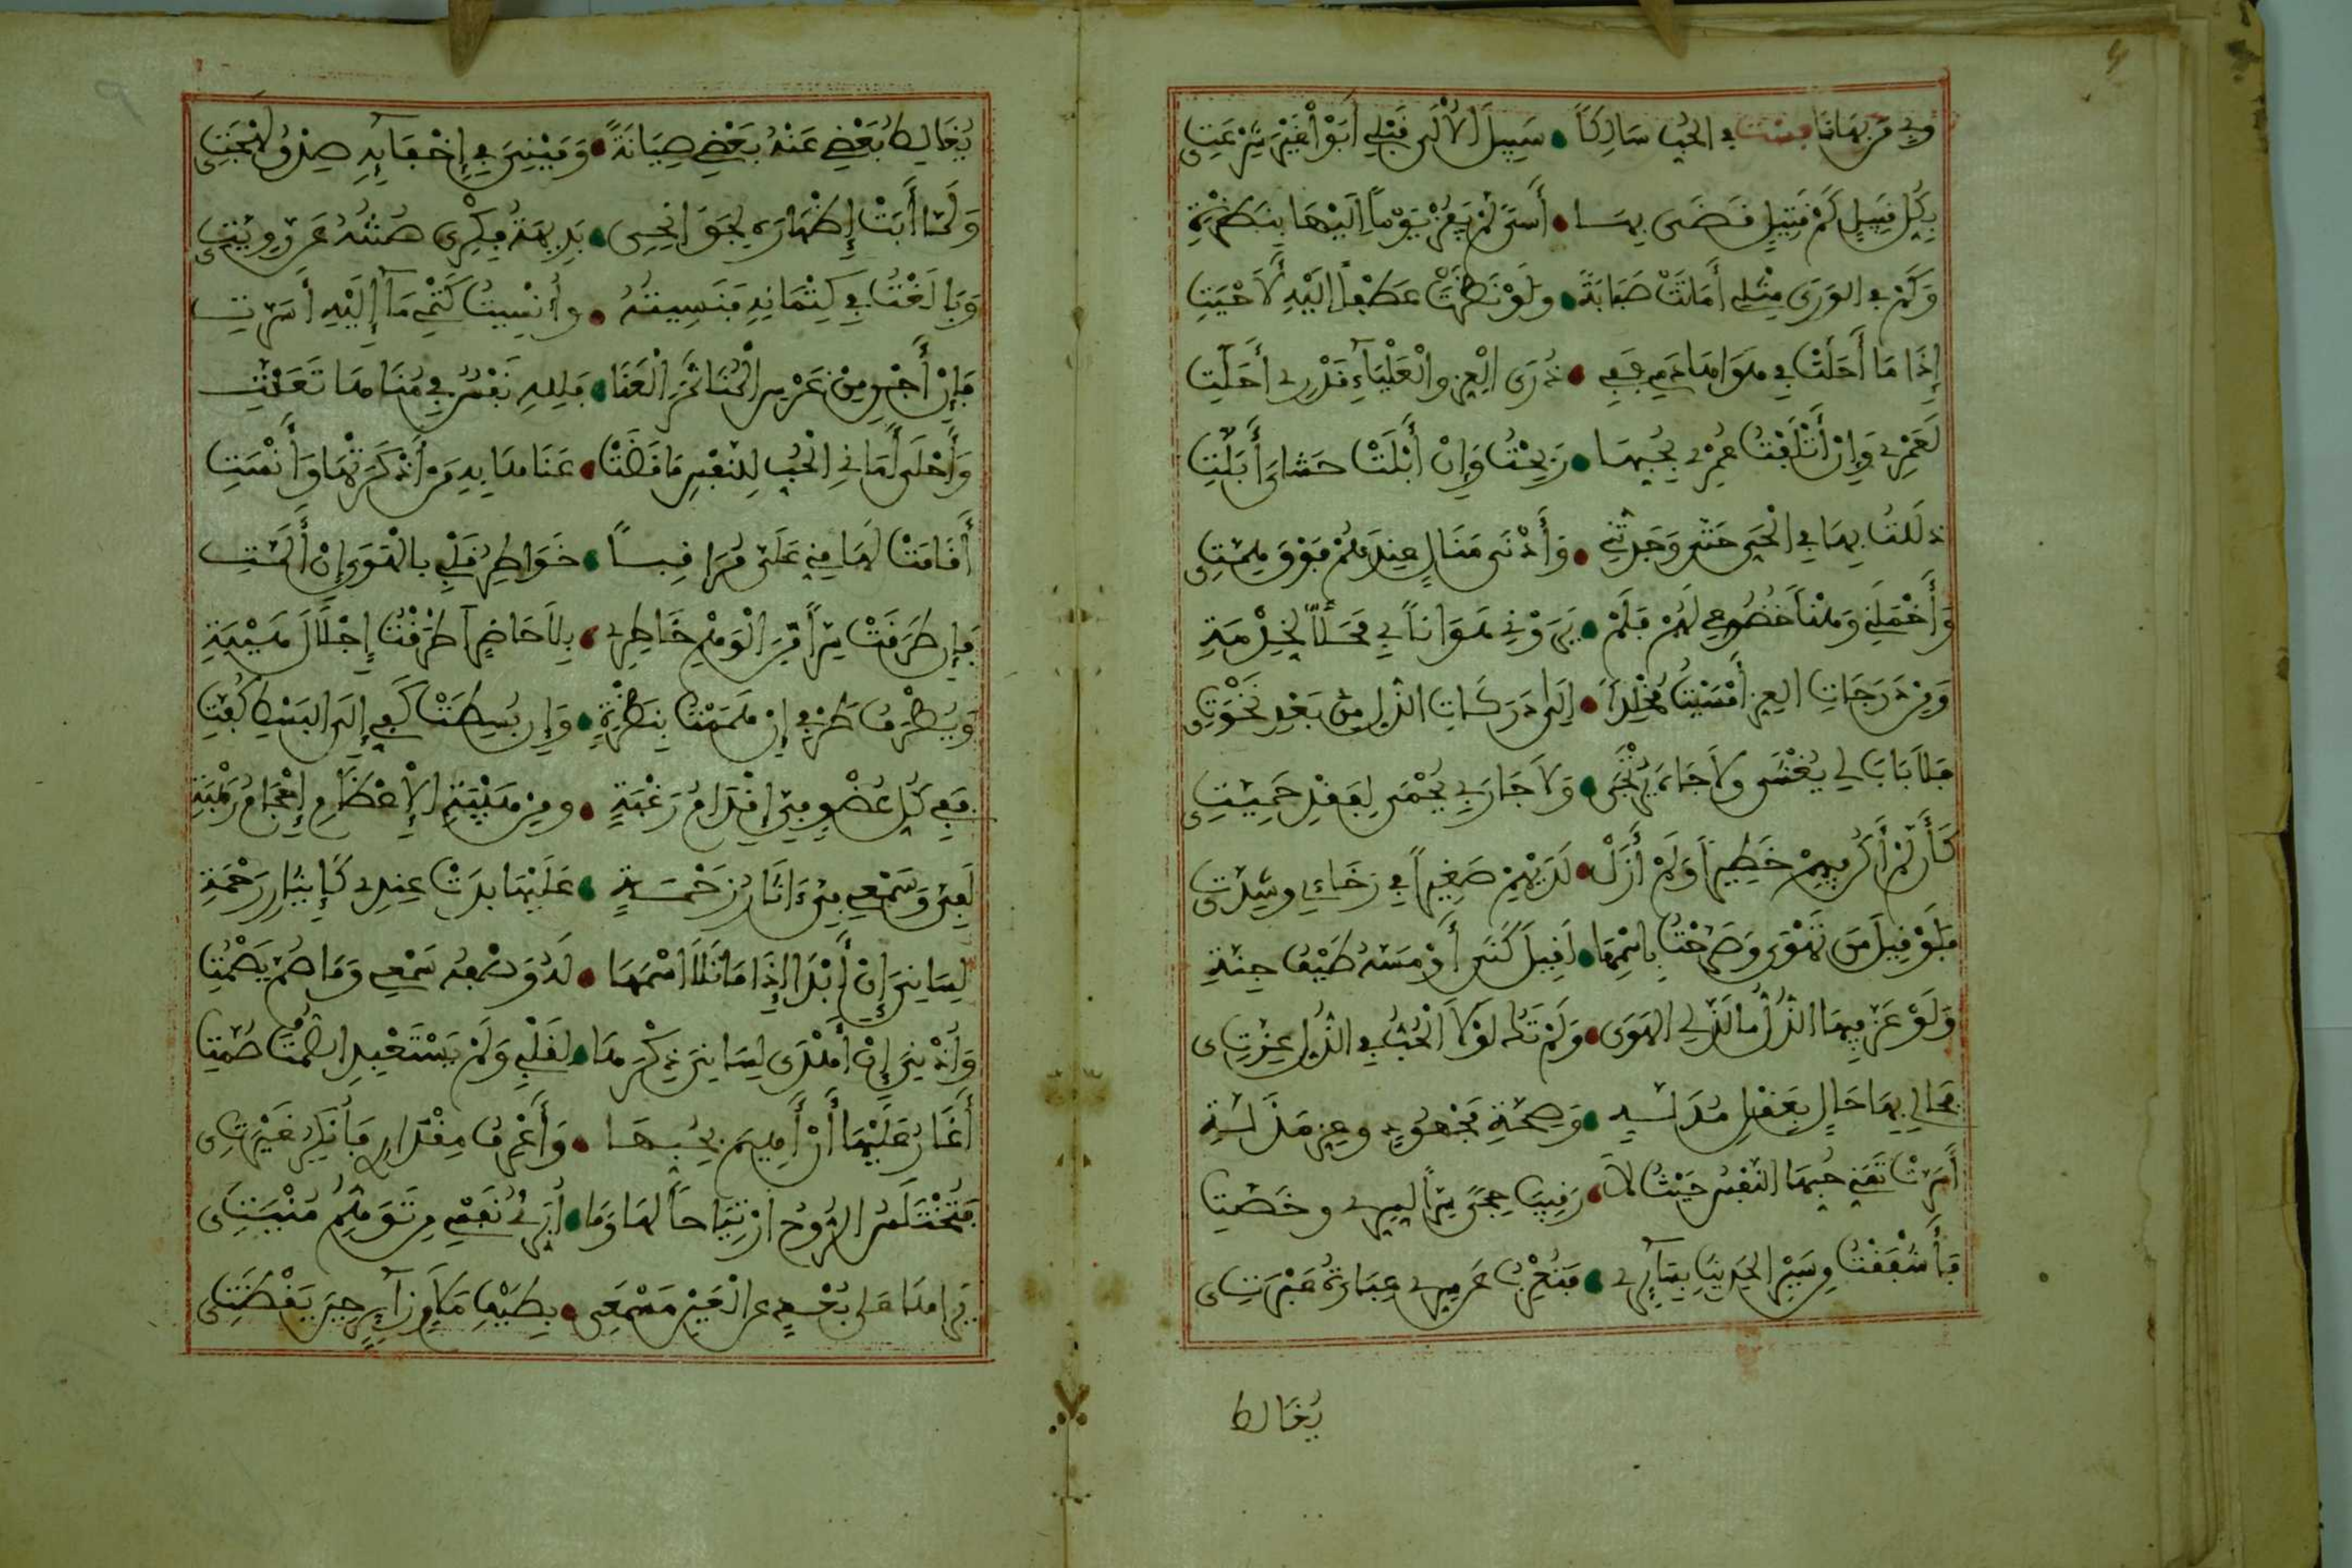 وبي من بها نافست في الحب سالكا • سبيل الألى قبلي أبوا غير شرعتي
بكل قبيل كم قتيل قضى بها • أسى لم يفز يوما إليها بنظرة
وكم في الورى مثلي أماتت صبابة • ولو نظرت عطفا إليه لأحيت
إذا ما أحلت في هواها دمي ففي • ذرى العز والعلياء قدري أحلت
لعمري وإن أتلفت عمري بحبها • ربحت وإن أبلت حشاي أبلت
ذللت بها في الحي حتى وجدتني • وأدنى منال عندهم فوق همتي
وأخملني وهنا خضوعي لهم فلم • يروني هوانا بي محلا لخدمة
ومن درجات العز أمسيت مخلدا • إلى دركات الذل من بعد نخوتي
فلا باب لي يغشى ولا جاه يرتجى • ولا جار بي يحمى لفقد حميتي
كأن لم أكن فيهم خطيرا ولم أزل • لديهم صغيرا في رخائي وشدتي
فلو قيل من تهوى وصرحت باسمها • لقيل كنى أو مسه طيف جنة
ولو عز فيها الذل ما لذ لي الهوى • ولم تك لولا الحب في الذل عزتي
فحالي بها حال بعقل مدله • وصحة مجهود وعز مذلة
أسرت تمني حبها النفس حيث لا • رقيب حجى سرا لسري وخصت
فأشفقت من سير الحديث بسائري • فتعرب عن سري عبارة عبرتي
يغالط
يغالط بعضي عنه بعضي صيانة • وميني في إخفائه صدق لهجتي
ولما أبت إظهاره لجوانحي • بديهة فكري صنته عن رويتي
وبالغت في كتمانه فنسيته • وأنسيت كتمي ما إليه أسرت
فإن أجن من غرس المنا ثمر العنا • فلله نفس في مناها تعنت
وأحلى أماني الحب للنفس ما قضت • عناها به من أذكرتها وأنست
أقامت لها مني علي مراقبا • خواطر قلبي بالهوى إن ألمت
فإن طرقت سرا من الوهم خاطري • بلا حاضر أطرقت إجلال هيبة
ويطرف طرفي إن هممت بنظرة • وإن بسطت كفي إلى البسط كفت
ففي كل عضو في إقدام رغبة • ومن هيبة الإعظام إحجام رهبة
لفي وسمعي في ءاثار زحمة • عليها بدت عندي كإيثار رحمة
لساني إن أبدا إذا ما تلا اسمها • له وصفه سمعي وما صم يصمت
وأذني إن أهدى لساني ذكرها • لقلبي ولم يستعبد الصمت صمت
أغار عليها أن أهيم بحبها • وأعرف مقداري فأنكر غيرتي
فتختلس الروح ارتياحا لها وما • أبرئ نفسي من توهم منيتي
يراها على بعد عن العين مسمعي • بطيف ملام زائر حين يقظتي